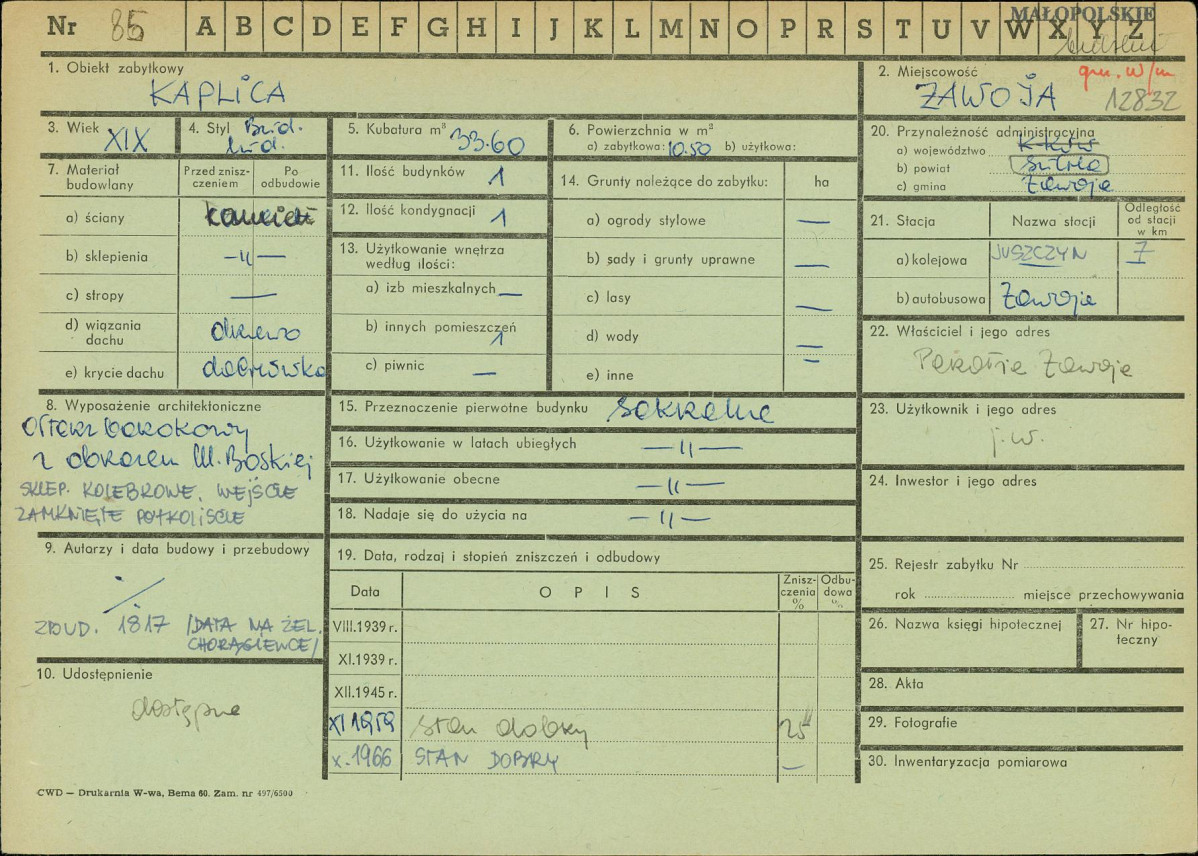 Nr 85 A B C D E F G H I J K L M N O P R S T U V W X Y Z
MAŁOPOLSKIE
1. Obiekt zabytkowy
KAPLICA
2. Miejscowość
gm. w/m
ZAWOJA 12832
3. Wiek
XIX
4. Styl Bud.
lud.
5. Kubatura m³
33.60
6. Powierzchnia w m²
a) zabytkowa: 10.50 b) użytkowa:
20. Przynależność administracyjna
a) województwo
b) powiat
c) gmina Zawoja
7. Materiał budowlany
Przed zniszczeniem
Po odbudowie
a) ściany kamień
b) sklepienia —„—
c) stropy —
d) wiązania dachu drewno
e) krycie dachu dachówka
11. Ilość budynków 1
12. Ilość kondygnacji 1
13. Użytkowanie wnętrza według ilości:
a) izb mieszkalnych —
b) innych pomieszczeń 1
c) piwnic —
14. Grunty należące do zabytku: ha
a) ogrody stylowe —
b) sady i grunty uprawne —
c) lasy —
d) wody —
e) inne —
21. Stacja Nazwa stacji Odległość od stacji w km
a) kolejowa JUSZCZYN 7
b) autobusowa Zawoja
22. Właściciel i jego adres
Parafia Zawoja
8. Wyposażenie architektoniczne
Ołtarz barokowy
z obrazem M. Boskiej
SKLEP. KOLEBKOWE. WEJŚCIE
ZAMKNIĘTE PÓŁKOLIŚCIE
15. Przeznaczenie pierwotne budynku sakralne
16. Użytkowanie w latach ubiegłych —„—
17. Użytkowanie obecne —„—
18. Nadaje się do użycia na —„—
23. Użytkownik i jego adres
j.w.
24. Inwestor i jego adres
9. Autorzy i data budowy i przebudowy
ZBUD. 1817 /DATA NA ŻEL.
CHORĄGIEWCE/
10. Udostępnienie
dostępne
19. Data, rodzaj i stopień zniszczeń i odbudowy
Data OPIS Zniszczenia % Odbudowa %
VIII.1939 r.
XI.1939 r.
XII.1945 r.
XI 1959 stan dobry 25
X.1966 STAN DOBRY —
25. Rejestr zabytku Nr
rok miejsce przechowywania
26. Nazwa księgi hipotecznej
27. Nr hipoteczny
28. Akta
29. Fotografie
30. Inwentaryzacja pomiarowa
CWD — Drukarnia W-wa, Bema 60. Zam. nr 497/6500